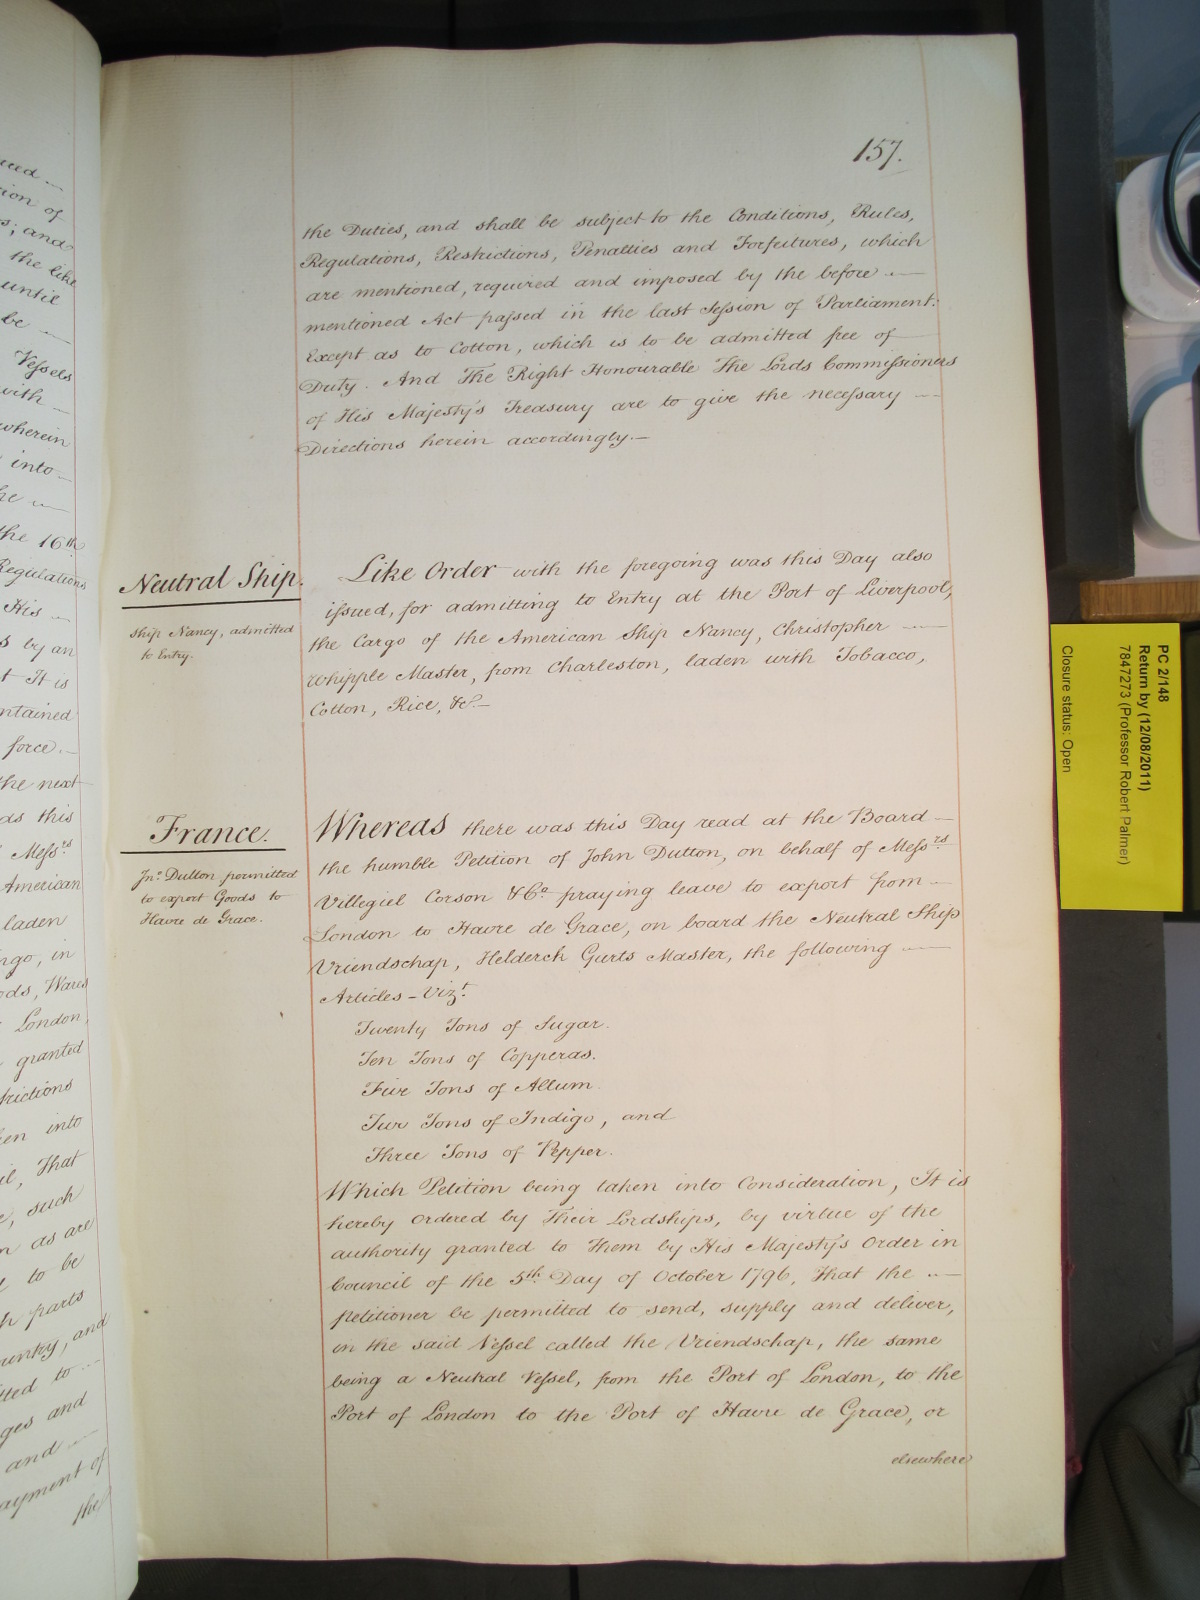 157.
the Duties, and shall be subject to the Conditions, Rules,
Regulations, Restrictions, Penalties and Forfeitures, which
are mentioned, required and imposed by the before
mentioned Act passed in the last Session of Parliament:
Except as to Cotton, which is to be admitted free of
Duty. And The Right Honourable The Lords Commissioners
of His Majesty's Treasury are to give the necessary
Directions herein accordingly.
Neutral Ship.
Ship Nancy, admitted
to Entry.
Like Order with the foregoing was this Day also
issued, for admitting to Entry at the Port of Liverpool,
the Cargo of the American Ship Nancy, Christopher
Whipple Master, from Charleston, laden with Tobacco,
Cotton, Rice, &c.
France.
Jno. Dutton permitted
to export Goods to
Havre de Grace.
Whereas there was this Day read at the Board
the humble Petition of John Dutton, on behalf of Messrs
Villegiel Corson & Co. praying leave to export from
London to Havre de Grace, on board the Neutral Ship
Vriendschap, Helderch Gurts Master, the following
Articles - Vizt.
Twenty Tons of Sugar.
Ten Tons of Copperas.
Five Tons of Allum.
Two Tons of Indigo, and
Three Tons of Pepper.
Which Petition being taken into Consideration, It is
hereby Ordered by Their Lordships, by virtue of the
authority granted to Them by His Majesty's Order in
Council of the 5th Day of October 1796, That the
Petitioner be permitted to send, supply and deliver,
in the said Vessel called the Vriendschap, the same
being a Neutral Vessel, from the Port of London, to the
Port of London to the Port of Havre de Grace, or
elsewhere
ion of
; and
the like
until
be
Vessels
with
wherein
into
the 16th
Regulations
His
by an
It is
force.
the next
this
Messrs
American
laden
in
Wares
London
granted
into
That
such
as are
to be
parts
and
to
and
and
payment of
the
PC 2/148
Return by (12/08/2011)
7847273 (Professor Robert Palmer)
Closure status: Open